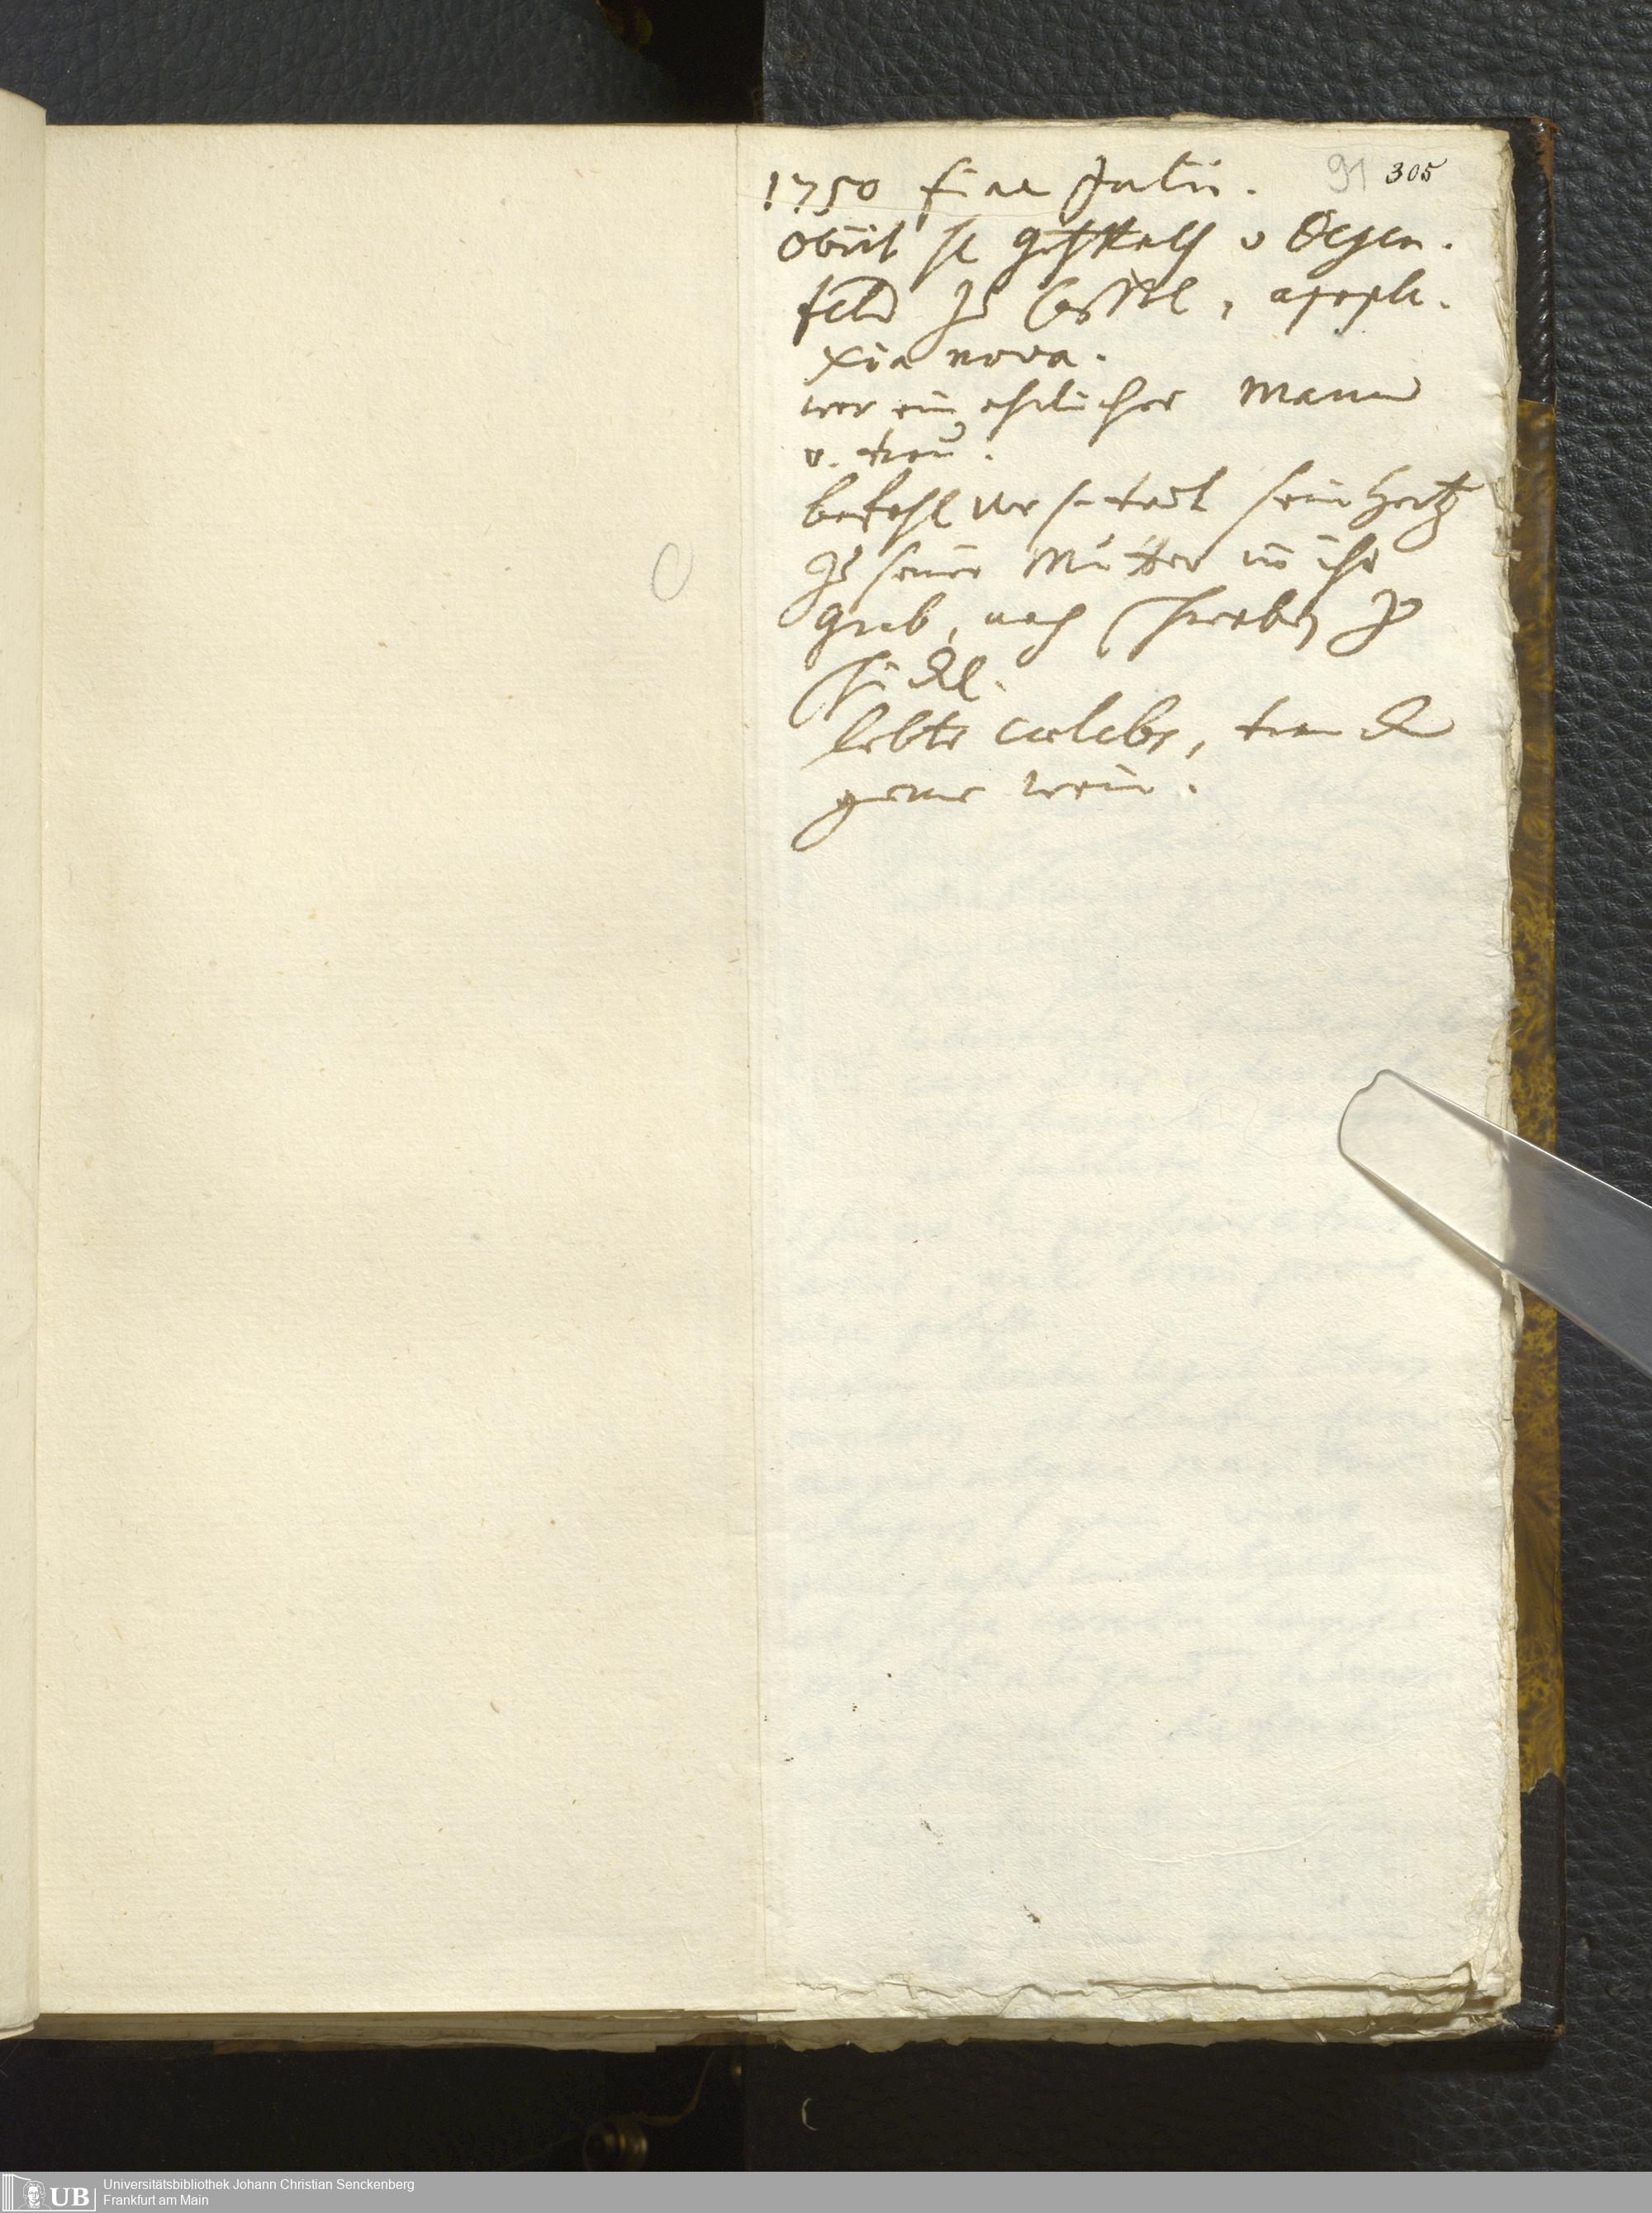 91 305
1750 fine Julii.
obiit H GehRath v Degen-
feld zu Cassel, apople-
xia nova.
war ein ehrlicher Mann
v. treu.
befahl sein Hertz
zu seiner Mutter in ihr
grab, nach Schwaben zu
schickē.
lebte caelebs, tranck
gerne wein.
UB
Universitätsbibliothek Johann Christian Senckenberg
Frankfurt am Main